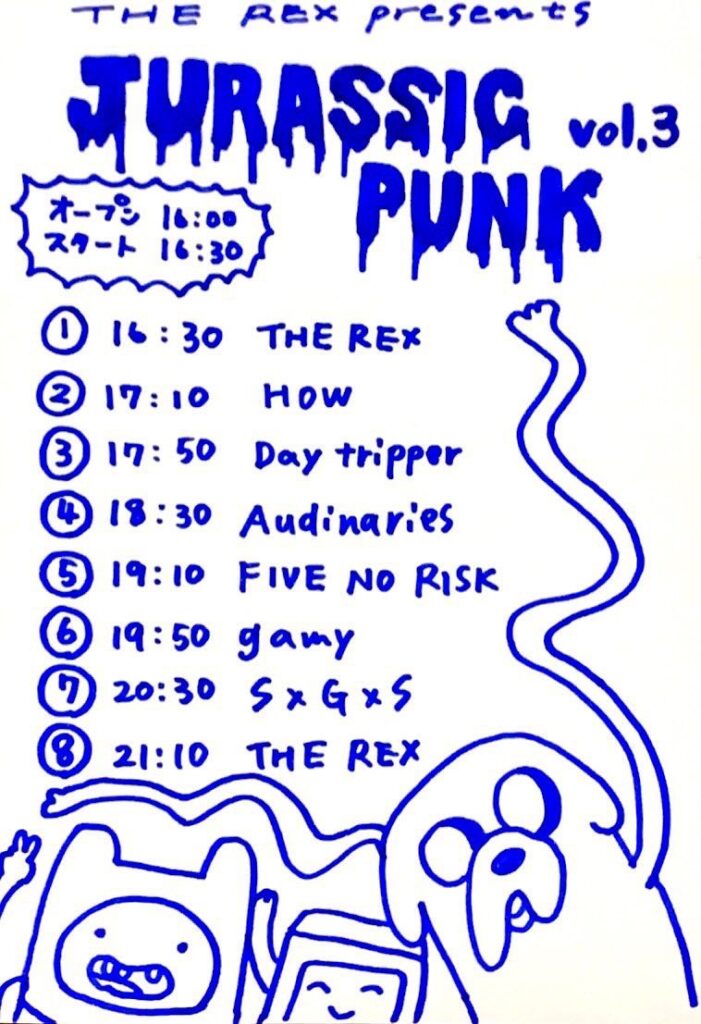 THE REX presents
JURASSIC vol.3
PUNK
オープン 16:00
スタート 16:30
① 16:30 THE REX
② 17:10 HOW
③ 17:50 Day tripper
④ 18:30 Audinaries
⑤ 19:10 FIVE NO RISK
⑥ 19:50 gamy
⑦ 20:30 S x G x S
⑧ 21:10 THE REX